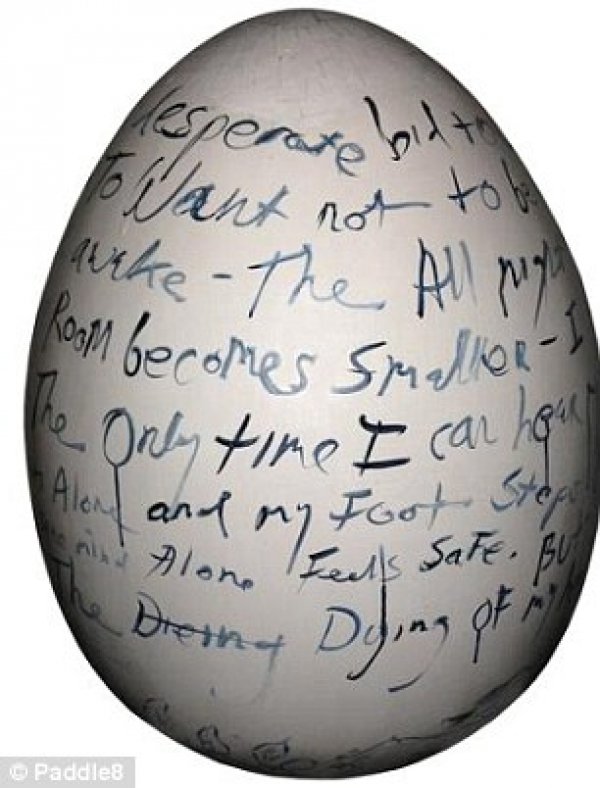 desperate bid to
To Want not to be
awake - The All nigh
Room becomes Smaller - I
The Only time I can hear
Alone and my Foot Step
mind Alone Feels Safe. BU
The Dieing Dying OF my
© Paddle8